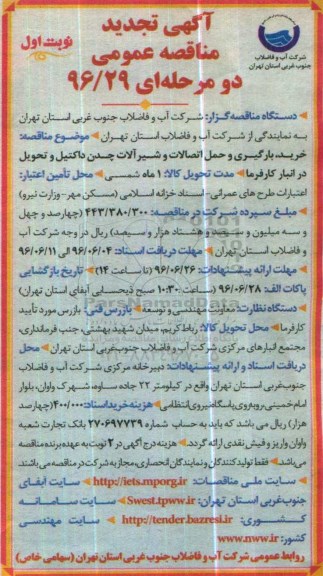 آگهی تجدید
مناقصه عمومی
دو مرحله‌ای ۹۶/۲۹
نوبت اول
شرکت آب و فاضلاب
جنوب غربی استان تهران
دستگاه مناقصه‌گزار: شرکت آب و فاضلاب جنوب غربی استان تهران
به نمایندگی از شرکت آب و فاضلاب استان تهران موضوع مناقصه:
خرید، بارگیری و حمل اتصالات و شیرآلات چدن داکتیل و تحویل
در انبار کارفرما مدت تحویل کالا: ۱ ماه شمسی محل تأمین اعتبار:
اعتبارات طرح های عمرانی- اسناد خزانه اسلامی (مسکن مهر- وزارت نیرو)
مبلغ سپرده شرکت در مناقصه: ۴۴۳/۳۸۰/۳۰۰ (چهارصد و چهل
و سه میلیون و سیصد و هشتاد هزار و سیصد) ریال در وجه شرکت آب
و فاضلاب استان تهران مهلت دریافت اسناد: ۹۶/۰۶/۰۴ الی ۹۶/۰۶/۱۱
مهلت ارائه پیشنهادات: ۹۶/۰۶/۲۶ (تا ساعت ۱۴) تاریخ بازگشایی
پاکات الف: ۹۶/۰۶/۲۸ (ساعت ۱۰:۳۰ صبح ذیحسابی آبفای استان تهران)
دستگاه نظارت: معاونت مهندسی و توسعه بازرس فنی: بازرس مورد تأیید
کارفرما محل تحویل کالا: رباط کریم، میدان شهید بهشتی، جنب فرمانداری،
مجتمع انبارهای مرکزی شرکت آب و فاضلاب جنوب غربی استان تهران محل
دریافت اسناد و ارائه پیشنهادات: دبیرخانه مرکزی شرکت آب و فاضلاب
جنوب غربی استان تهران واقع در کیلومتر ۲۲ جاده ساوه، شهرک واوان، بلوار
امام خمینی، روبه‌روی پاسگاه نیروی انتظامی هزینه خرید اسناد: ۴۰۰/۰۰۰ (چهارصد
هزار) ریال می باشد که باید به حساب شماره ۲۷۰۶۹۷۷۳۹ بانک تجارت شعبه
واوان واریز و فیش نقدی ارائه گردد. هزینه درج آگهی در ۲ نوبت به عهده برنده مناقصه
می‌باشد فقط تولیدکنندگان و نمایندگان انحصاری، مجاز به شرکت در مناقصه می باشند
سایت ملی مناقصات: http://iets.mporg.ir سایت آبفای
جنوب غربی استان تهران: Swest.tpww.ir سایت سامانه
کشوری: http://tender.bazresi.ir سایت مهندسی
کشور: www.nww.ir
روابط عمومی شرکت آب و فاضلاب جنوب غربی استان تهران (سهامی خاص)
ParsNamadData